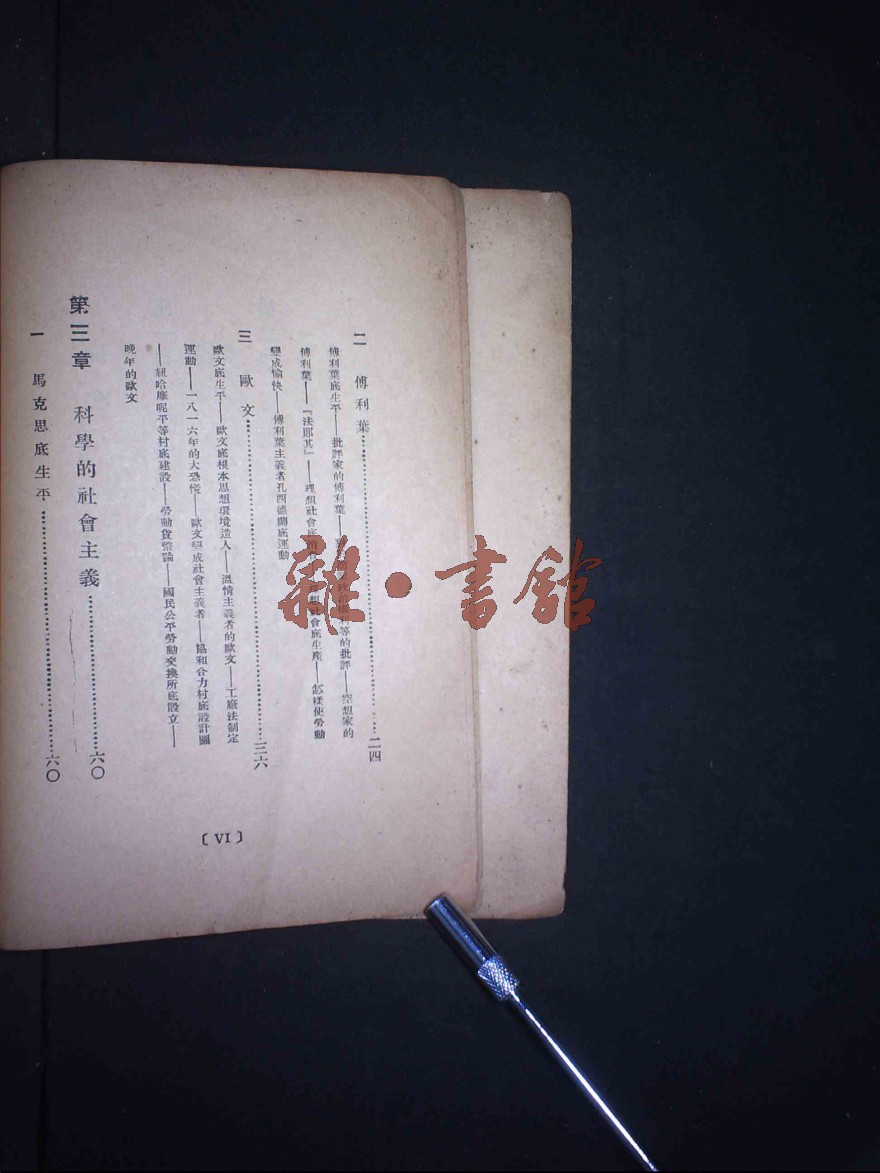 二 傅利葉……二四
傅利葉底生平——批評家的傅利葉——政治權利等的批評——空想家的
傅利葉——『法郎其』——理想社會底——理想社會底生產——怎樣使勞動
變成愉快——傅利葉主義者孔西德蘭底運動
三 歐文……三六
歐文底生平——歐文底根本思想環境造人——溫情主義者的歐文——工廠法制定
運動——一八一六年的大恐慌——歐文變成社會主義者——協和合力村底設計圖
——紐哈廉呢平等村底建設——勞動貨幣論——國民公平勞動交換所底設立——
晚年的歐文
第三章 科學的社會主義……六〇
一 馬克思底生平……六〇
〔VI〕
雜·書館